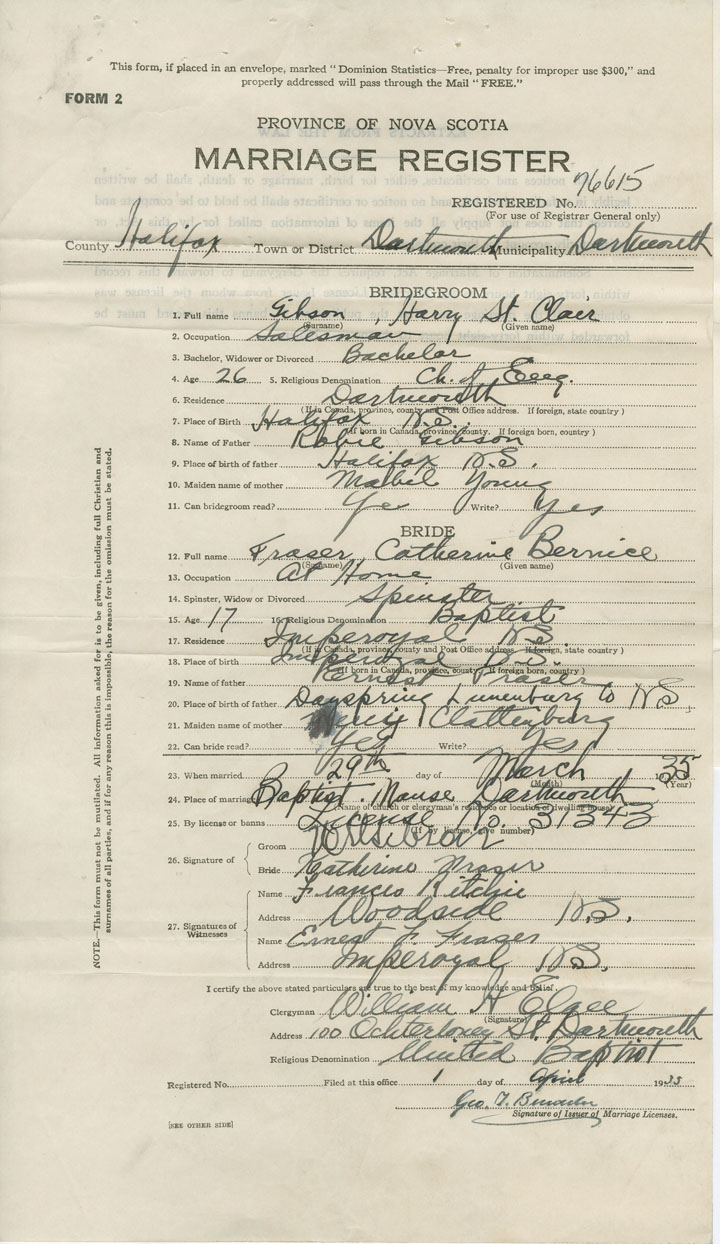 This form, if placed in an envelope, marked "Dominion Statistics—Free, penalty for improper use $300," and
properly addressed will pass through the Mail "FREE."
FORM 2
PROVINCE OF NOVA SCOTIA
MARRIAGE REGISTER
REGISTERED No. 76615
(For use of Registrar General only)
County Halifax Town or District Dartmouth Municipality Dartmouth
BRIDEGROOM
1. Full name Gibson, Harry St. Claer
(Surname) (Given name)
2. Occupation Salesman
3. Bachelor, Widower or Divorced Bachelor
4. Age 26 5. Religious Denomination Ch. of Eng.
6. Residence Dartmouth
(If in Canada, province, county and Post Office address. If foreign, state country)
7. Place of Birth Halifax N.S.
(If born in Canada, province, county. If foreign born, country)
8. Name of Father Robie Gibson
9. Place of birth of father Halifax N.S.
10. Maiden name of mother Mabel Young
11. Can bridegroom read? Ye Write? Yes
BRIDE
12. Full name Fraser, Catherine Bernice
(Surname) (Given name)
13. Occupation At Home
14. Spinster, Widow or Divorced Spinster
15. Age 17 16. Religious Denomination Baptist
17. Residence Imperoyal N.S.
(If in Canada, province, county and Post Office address. If foreign, state country)
18. Place of birth Imperoyal N.S.
(If born in Canada, province, county. If foreign born, country)
19. Name of father Ernest Fraser
20. Place of birth of father Dayspring Lunenburg Co N.S.
21. Maiden name of mother Clattenburg
22. Can bride read? Yes Write? Yes
23. When married 29th day of March 1935
(Month) (Year)
24. Place of marriage Baptist Manse Dartmouth
(Name of church or clergyman's residence or location of dwelling house)
25. By license or banns License No. 31343
(If by license, give number)
26. Signature of
Groom
Bride Katherine Fraser
27. Signatures of Witnesses
Name Francis Ritchie
Address Woodside N.S.
Name Ernest F. Fraser
Address Imperoyal N.S.
I certify the above stated particulars are true to the best of my knowledge and belief.
Clergyman William H
(Signature)
Address 100 Ochterloney St. Dartmouth
Religious Denomination United Baptist
Registered No. Filed at this office 1 day of April 1935
Geo.
Signature of Issuer of Marriage Licenses.
[SEE OTHER SIDE]
NOTE.—This form must not be mutilated. All information asked for is to be given, including full Christian and
surnames of all parties, and if for any reason this is impossible, the reason for the omission must be stated.